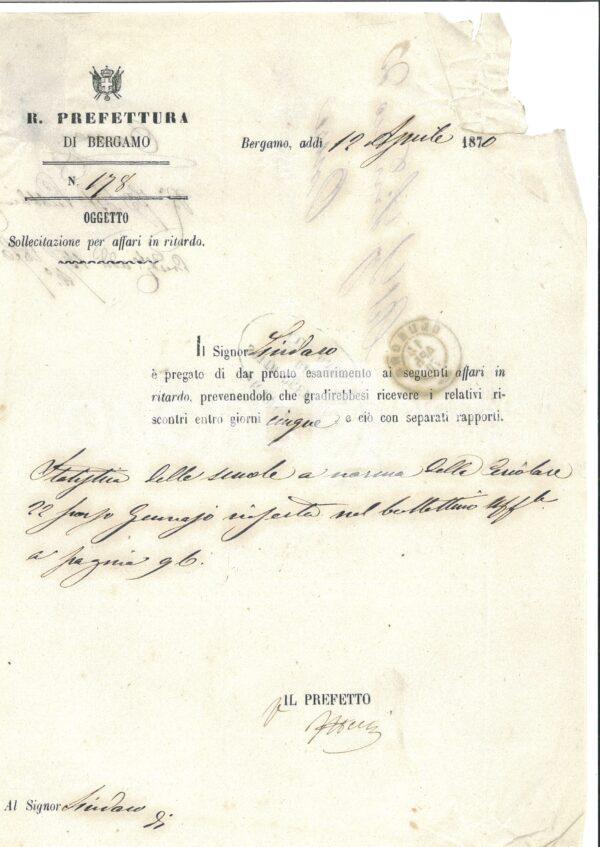 R. PREFETTURA
DI BERGAMO
Bergamo, addì 12 Aprile 1870
N. 178
OGGETTO
Sollecitazione per affari in ritardo.
Il Signor Sindaco
è pregato di dar pronto esaurimento ai seguenti affari in
ritardo, prevenendolo che gradirebbesi ricevere i relativi ri-
scontri entro giorni cinque e ciò con separati rapporti.
Statistica delle scuole a norma della Circolare
22 scorso Gennajo inserta nel bullettino Uff.le
a pagina 96.
IL PREFETTO
Al Signor Sindaco
di